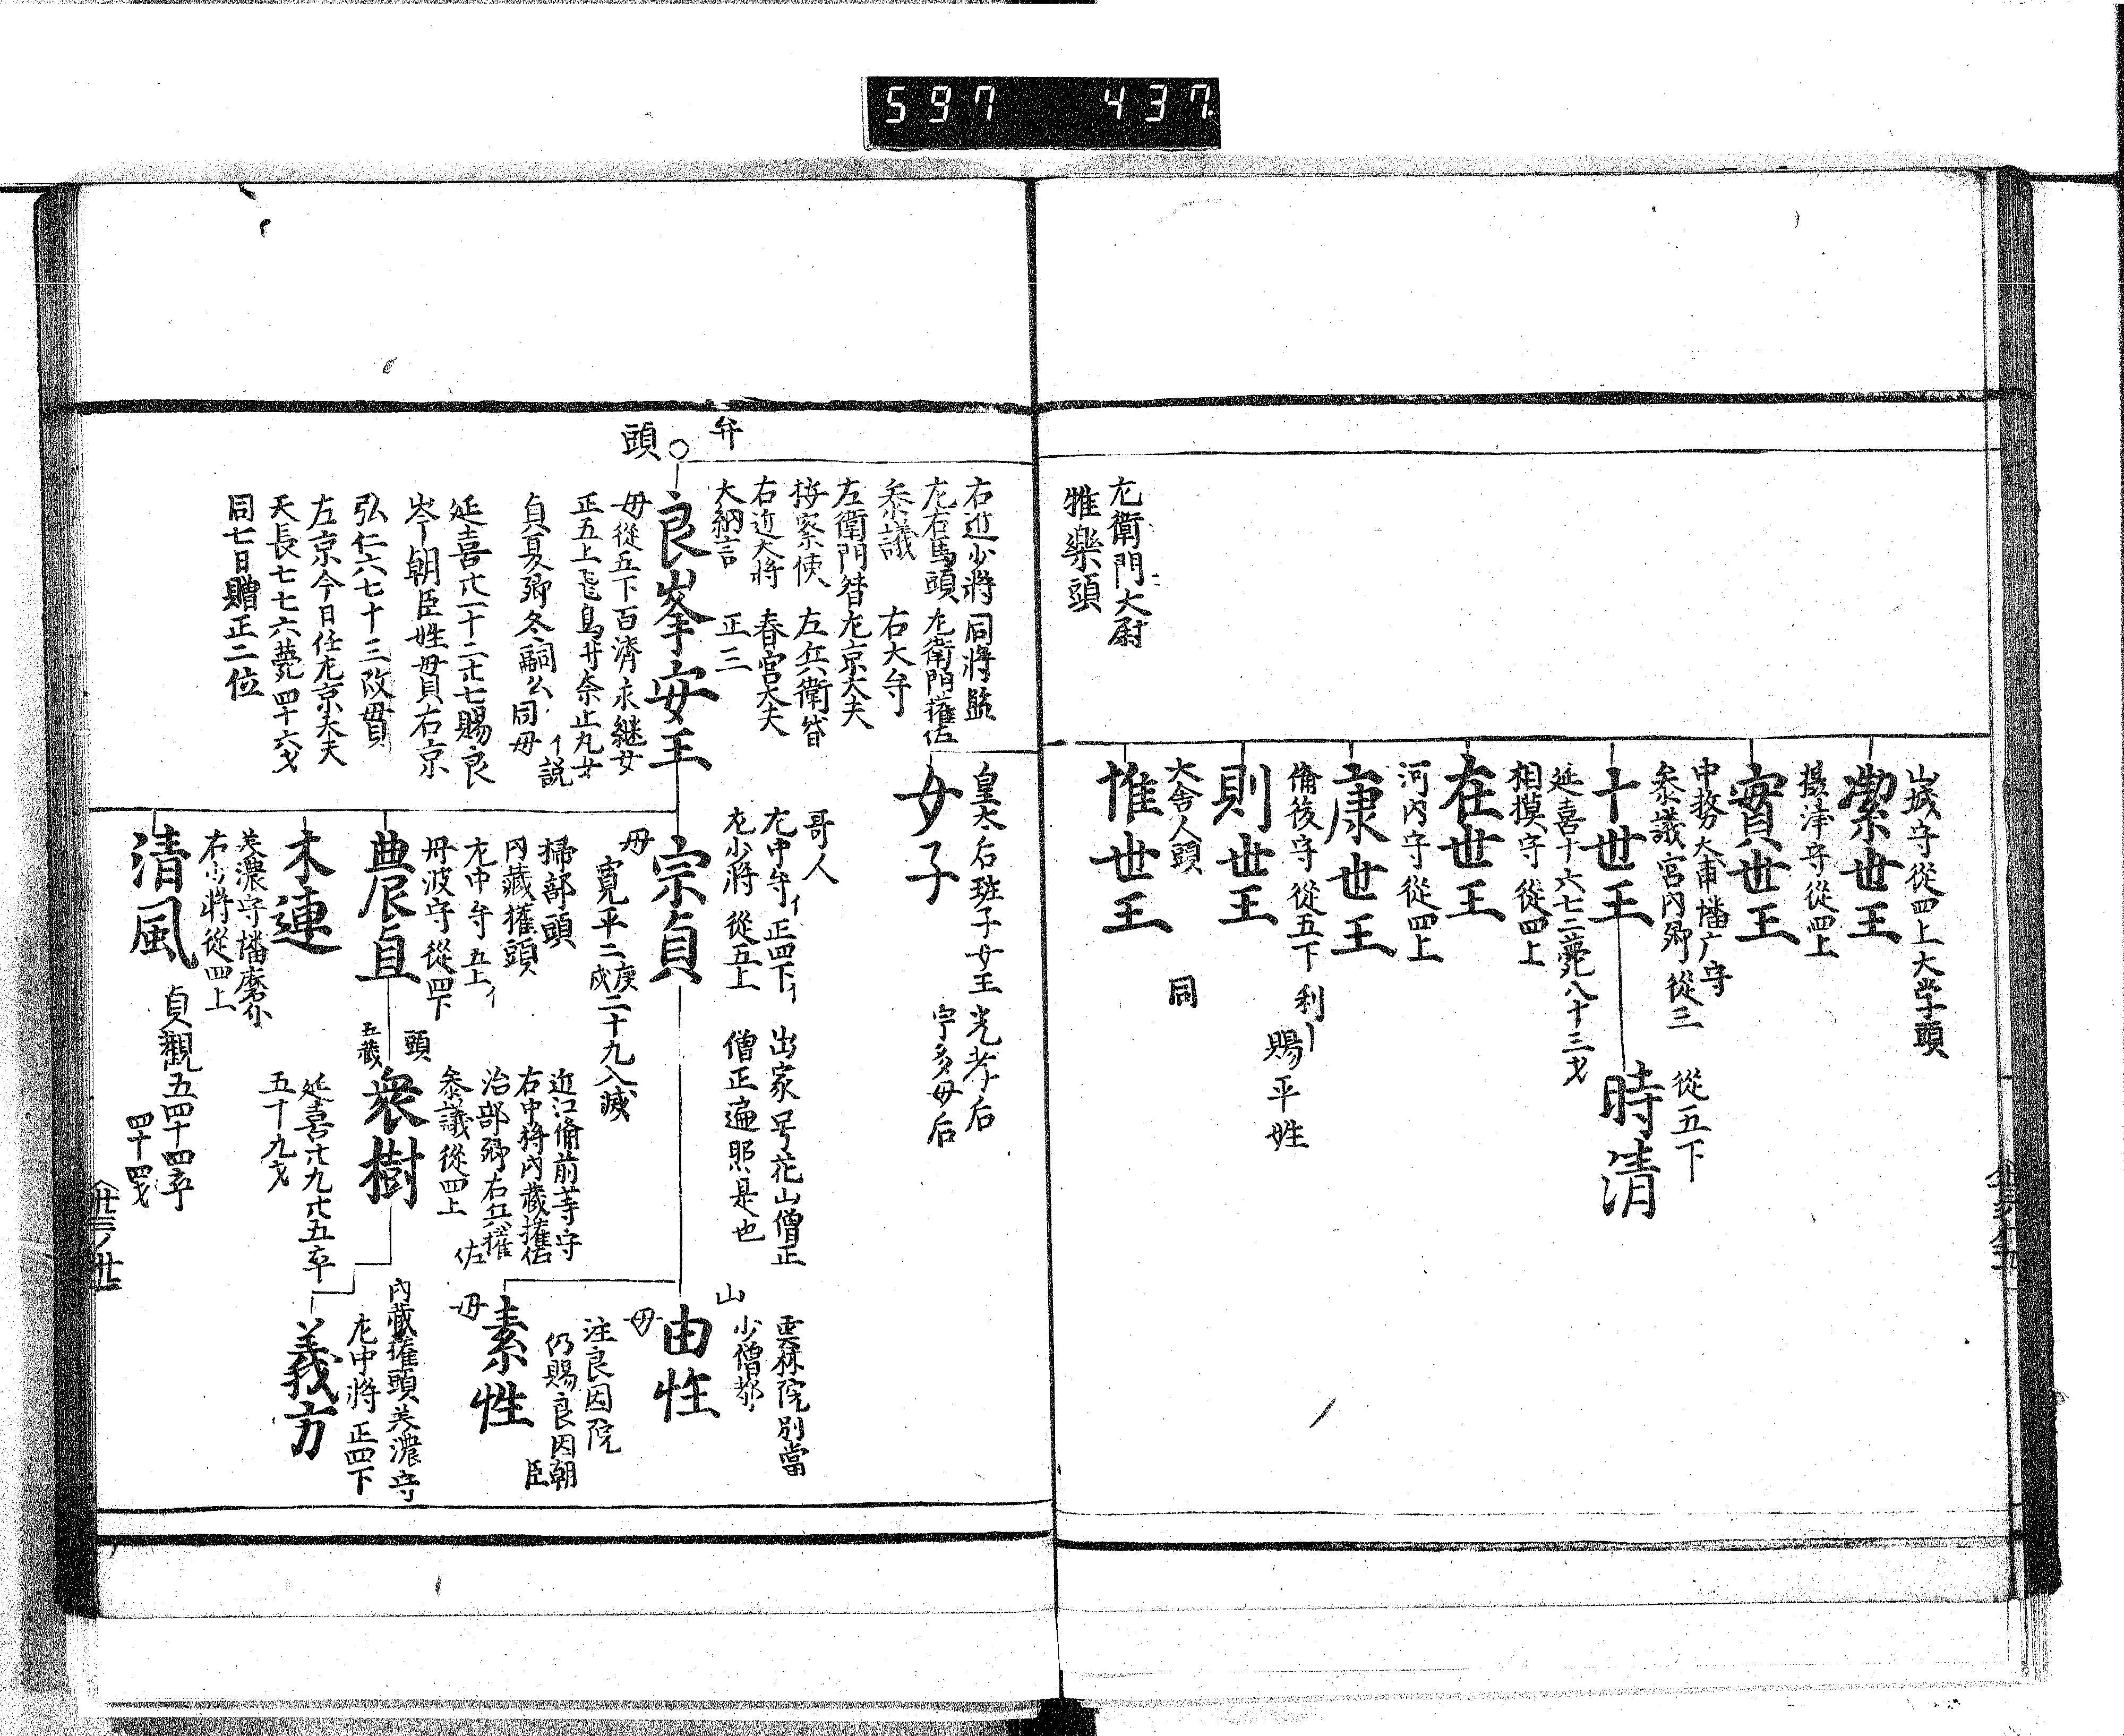 597 437
山城守從四上大学頭
潔世王
攝津守從四上
實世王
中務大甫播广守
叅議宮内卿從三
十世王
延喜十六七二薨八十三才
從五下
時清
相摸守從四上
在世王
河内守從四上
康世王
俻後守從五下
利
賜平姓
則世王
大舎人頭
同
惟世王
左衛門大尉
雅樂頭
皇太后班子女王光孝后
宇多母后
女子
右近少將同將監
左右馬頭左衛門權佐
叅議右大弁
左衛門督左京大夫
按察使左兵衛督
右近大將春宮大夫
大納言正三
弁
頭
良峯安王
母從五下百濟永継女
正五上飛鳥井奈止丸女
イ説
貞夏卿冬嗣公同母
延喜廿一十二廿七賜良
岑朝臣姓母貫右京
弘仁六七十三改貫
左京今日任左京大夫
天長七七六薨四十六才
同七日贈正二位
哥人
左中弁イ正四下イ
左少將從五上
出家号花山僧正
僧正遍照是也
宗貞
母
寛平二庚戌二十九入滅
雲林院別當
少僧都
山
由性
母
注良因院
仍賜良因朝臣
素性
母
掃部頭
内藏權頭
左中弁五上イ
丹波守從四下
農貞
近江俻前等守
右中將内藏權佐
治部卿右兵權佐
叅議從四上
頭
五蔵
衆樹
延喜廿九廿五卒
五十九才
内藏權頭美濃守
左中將正四下
義方
木連
美濃守播磨介
右少將從四上
清風
貞觀五四十四卒
四十四才